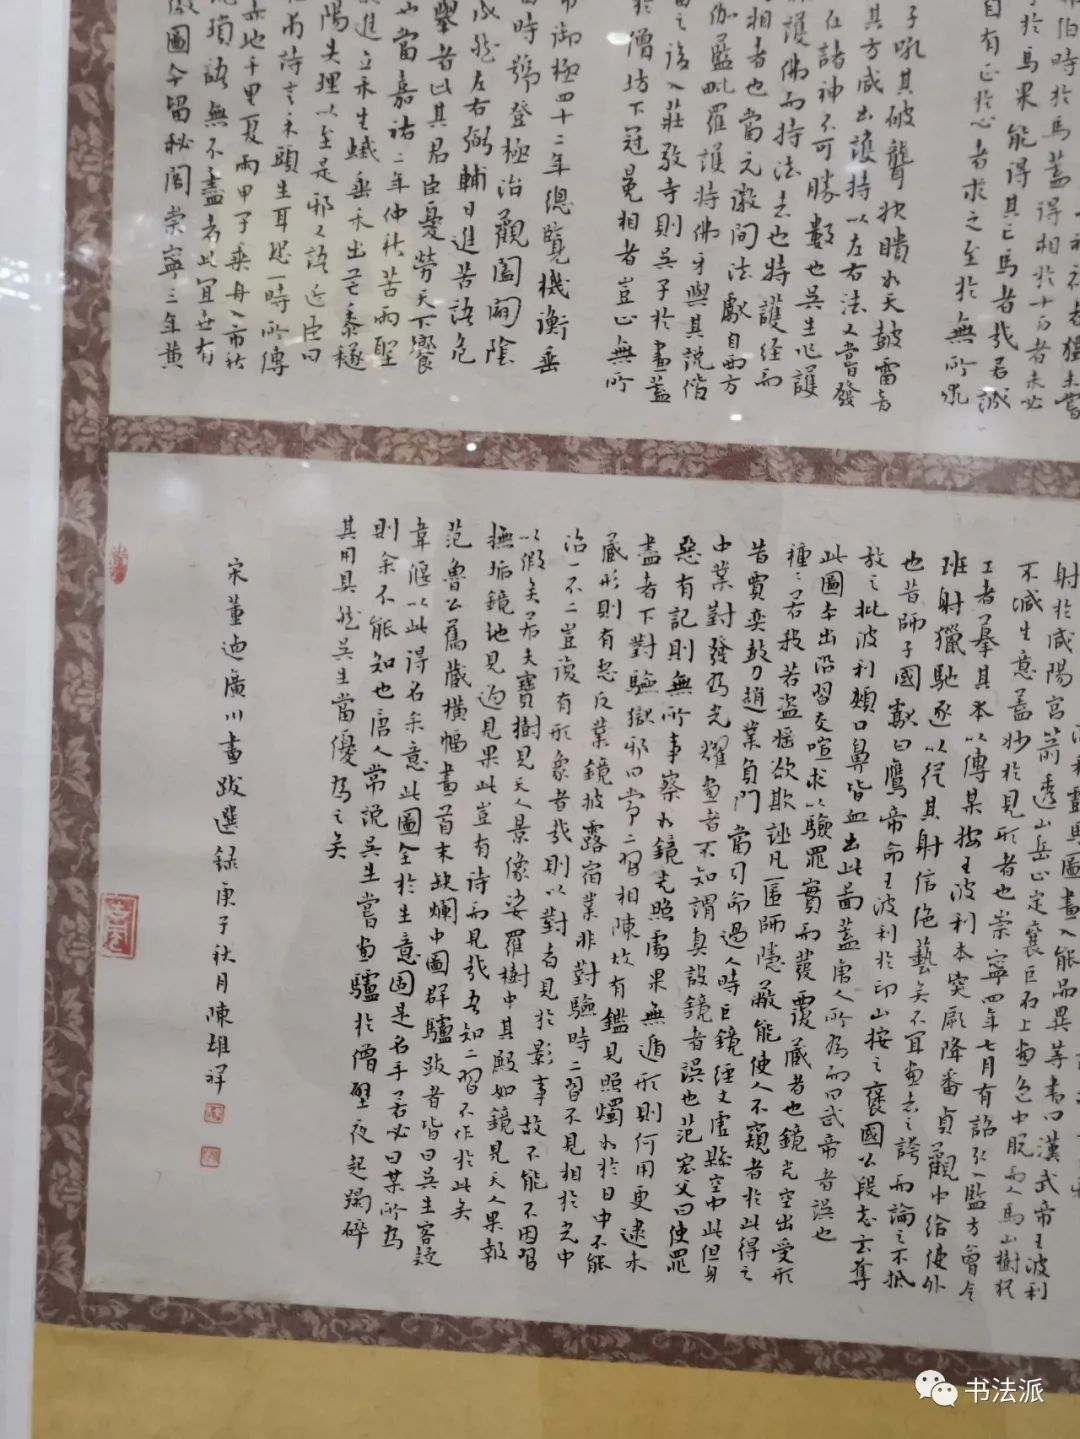 伯時於馬蓋得相於十百者未必
於馬果能得其已馬者哉君試
自有正於心者求之至於無所求
子吼其破聾抉瞶如天鼓雷音
其方咸出護持以左右法又嘗發
在諸神不可勝數也吳生作護
護佛而持法者也特護經而
相者也當元徽間法獻自西方
伽藍毗羅護持佛牙與其說偕
之後入莊嚴寺則吳子於畫蓋
於僧坊下冠冕相者豈止無所
帝御極四十二年總覽機衡垂
時號登極治觀闔闢陰
成然左右弼輔日進苦語危
舉者此其君臣憂勞天下饗
當嘉祐二年仲秋苦雨聖
進立禾生蟣垂禾出芒黍稷
陽失理以至是邪又語近臣曰
雨詩言禾頭生耳恐一時所傳
赤地千里夏雨甲子乘舟入市秋
瑣語無不盡者此宜世有
圖今留秘閣崇寧三年黃
圖畫入能品異等書曰漢武帝王波利
射於咸陽宮蕭透山岳止定襄巨石上畫色中脫而人馬山樹猶
不減生意蓋妙於見形者也崇寧四年七月有詔取入監方曾令
工者摹其本以傳某按王波利本突厥降番貞觀中給使外
班射獵馳逐以從其射信絕藝矣不宜畫去之誇而論之不抵
也昔師子國獻白鷹帝命王波利於印山按之褒國公段志玄奪
放之批波利頰口鼻皆血出此圖蓋唐人所為而曰武帝者誤也
此圖本出沿習交喧求以驗罪實而發覆藏者也鏡光空出受形
種種若殺若盜婬欲欺誑凡匿師隱蔽能使人不窺者於此得之
昔賈奕鼓刀趙業負門當司命過人時巨鏡徑丈虛縣空中此但身
中業對發為光耀畫者不知謂真設鏡者誤也范宏父曰使罪
惡有記則無所事察如鏡光照處果無遁形則何用更逮未
盡者下對驗獄邪曰嘗二習相陳故有鑑見照燭如於日中不能
藏形則有惡友業鏡披露宿業非對驗時二習不見相於光中
治一不二豈復有形象者哉則以對者見於影事故不能不因習
以假矣若夫寶樹見天人景像娑羅樹中其殿如鏡見天人果報
撫垢鏡地見過見果此豈有待而見哉吾知二習不作於此矣
范魯公舊藏橫幅畫首末缺爛中圖群驢跋者皆曰吳生客疑
韋偃以此得名余意此圖全於生意固是名手若必曰某所為
則余不能知也唐人常說吳生嘗畫驢於僧壁夜起蹋碎
其用具然吳生當優為之矣
宋董逌廣川畫跋選錄庚子秋月陳雄祥
书法派